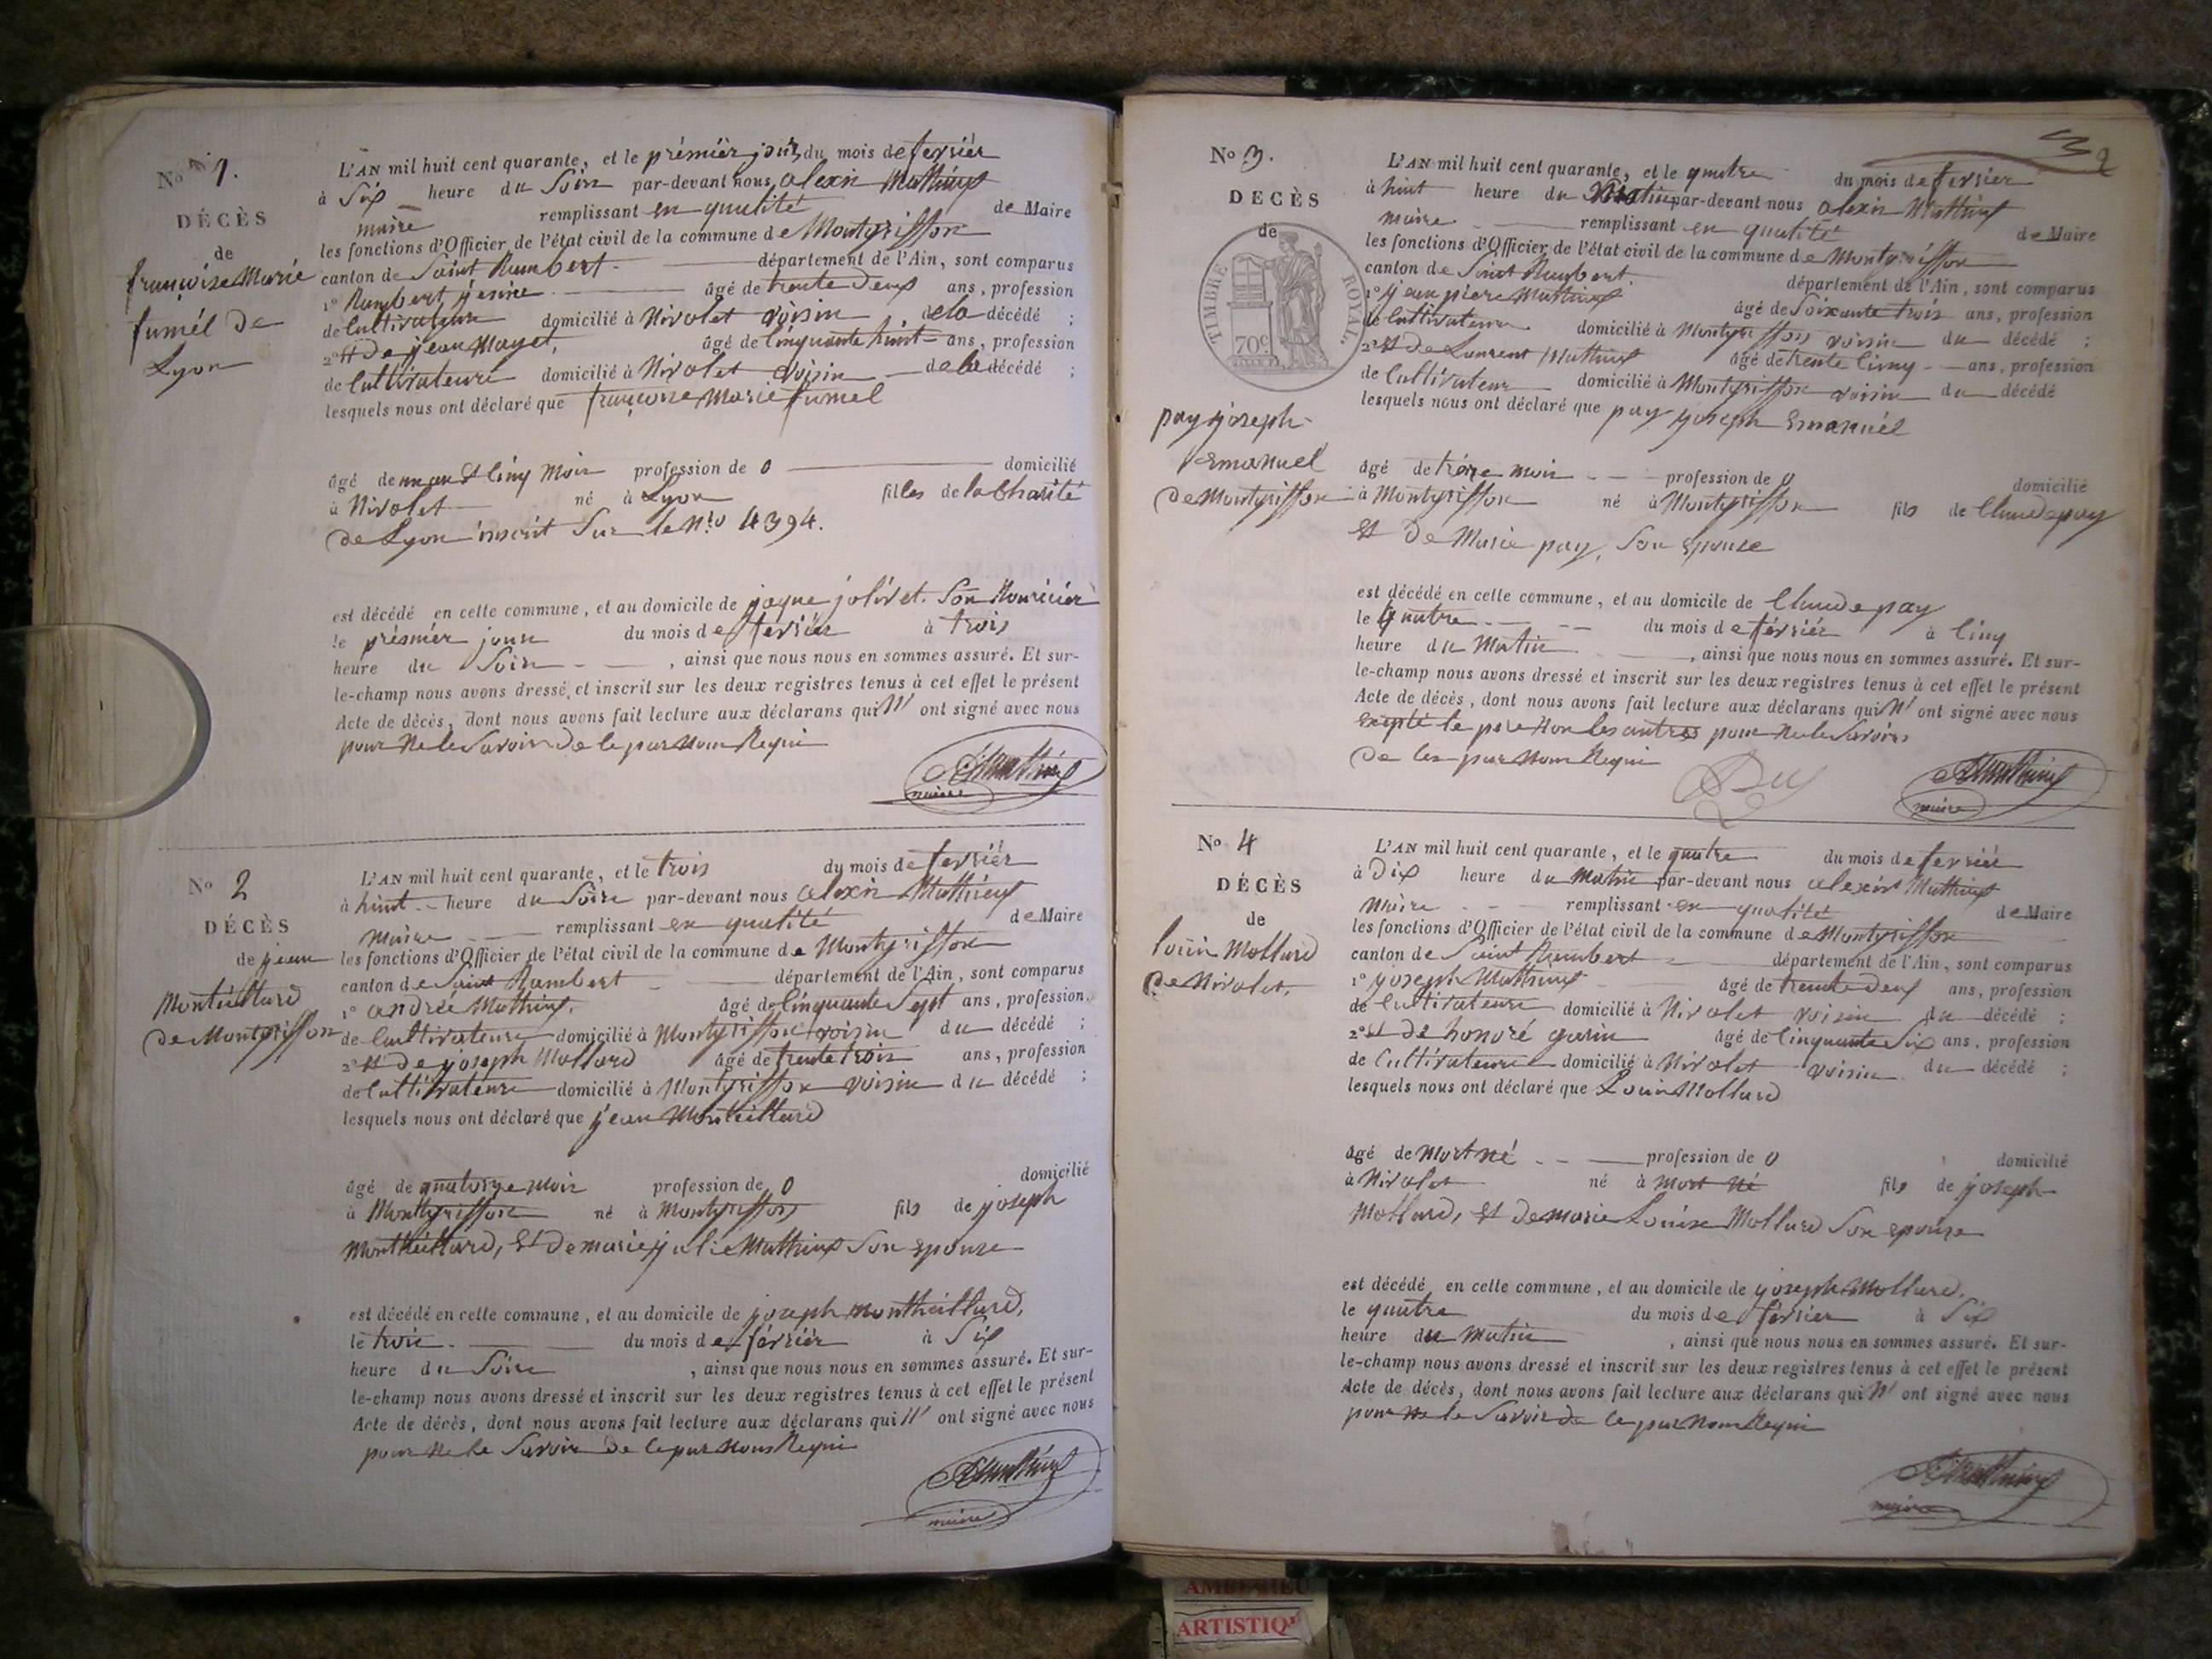 No 1.
DÉCÈS
de
françoise Marie
fumél de
Lyon
L'AN mil huit cent quarante, et le prémiér jour du mois de fevriér
à Six heure du Soir par-devant nous alexis Mathieux
maire remplissant en qualité de Maire
les fonctions d'Officier de l'état civil de la commune de Montgriffon
canton de Saint Rambert département de l'Ain, sont comparus
1° Rambert âgé de trente Deux ans, profession
de Cultivateur domicilié à Nivolet voisin de la décédé ;
2° et De jean Mayet, âgé de Cinquante huit ans, profession
de Cultivateur domicilié à Nivolet voisin de la décédé ;
lesquels nous ont déclaré que françoise Marie fumel
âgé de un an et Cinq Mois profession de 0 domicilié
à Nivolet né à Lyon filles de la Charité
de Lyon inscrit Sur le N.ro 4394.
est décédé en cette commune, et au domicile de jaque jolivet. Son Nouricier
le prémiér jour du mois de févriér à trois
heure du Soir , ainsi que nous nous en sommes assuré. Et sur-
le-champ nous avons dressé et inscrit sur les deux registres tenus à cet effet le présent
Acte de décès, dont nous avons fait lecture aux déclarans qui N' ont signé avec nous
pour Ne le Savoir de le par Nous Requi
AMathieux
maire
No 2
DÉCÈS
de jean
Montéillard
De Montgriffon
L'AN mil huit cent quarante, et le trois du mois de fevriér
à huit heure du Soire par-devant nous alexis Mathieux
Maire remplissant en qualité de Maire
les fonctions d'Officier de l'état civil de la commune de Montgriffon
canton de Saint Rambert département de l'Ain, sont comparus
1° andrée Mathieux. âgé de Cinquante Sept ans, profession
de Cultivateur domicilié à Montgriffon voisin du décédé ;
2° et De joseph Mollard âgé de trente trois ans, profession
de Cultivateur domicilié à Montgriffon voisin du décédé ;
lesquels nous ont déclaré que jean Montéillard
âgé de quatorze Mois profession de 0 domicilié
à Montgriffon né à Montgriffon fils de joseph
Monthéillard, et De marie julie Mathieux Son epouse
est décédé en cette commune, et au domicile de joseph Monthéillard,
le trois du mois de févriér à Six
heure du Soire , ainsi que nous nous en sommes assuré. Et sur-
le-champ nous avons dressé et inscrit sur les deux registres tenus à cet effet le présent
Acte de décès, dont nous avons fait lecture aux déclarans qui N' ont signé avec nous
pour Ne le Savoir de le par Nous Requi
AMathieux
maire
2
No 3.
DÉCÈS
de
TIMBRE ROYAL
70c
pay joseph
Emanuel
De Montgriffon
L'AN mil huit cent quarante, et le quatre du mois de fevriér
à huit heure du Matin par-devant nous alexis Mathieux
Maire remplissant en qualité de Maire
les fonctions d'Officier de l'état civil de la commune de Montgriffon
canton de Saint Rambert département de l'Ain, sont comparus
1° jean piere Mathieux âgé de Soixante trois ans, profession
de Cultivateur domicilié à Montgriffon voisin du décédé ;
2° et de Laurent Mathieux âgé de trente Cinq ans, profession
de Cultivateur domicilié à Montgriffon voisin du décédé
lesquels nous ont déclaré que pay joseph Emanuél
âgé de tréize mois profession de 0 domicilié
à Montgriffon né à Montgriffon fils de Claude pay
et De Marie pay, Son Epouse
est décédé en cette commune, et au domicile de Claude pay
le quatre du mois de févriér à Cinq
heure du Matin , ainsi que nous nous en sommes assuré. Et sur-
le-champ nous avons dressé et inscrit sur les deux registres tenus à cet effet le présent
Acte de décès, dont nous avons fait lecture aux déclarans qui N' ont signé avec nous
exepté le pere Non les autres pour Ne le Savoir
De les par Nous Requi
AMathieux
maire
No 4
DÉCÈS
de
Louis Mollard
De Nivolet.
L'AN mil huit cent quarante, et le quatre du mois de fevriér
à Dix heure du Matin par-devant nous alexis Mathieux
Maire remplissant en qualité de Maire
les fonctions d'Officier de l'état civil de la commune de Montgriffon
canton de Saint Rambert département de l'Ain, sont comparus
1° joseph Mathieux âgé de trente Deux ans, profession
de Cultivateur domicilié à Nivolet voisin du décédé ;
2° et De honoré garin âgé de Cinquante Six ans, profession
de Cultivateur domicilié à Nivolet voisin du décédé ;
lesquels nous ont déclaré que Louis Mollard
âgé de Mort né profession de 0 domicilié
à Nivolet né à mort né fils de joseph
Mollard, et de marie Louise Mollard Son epouse
est décédé en cette commune, et au domicile de joseph Mollard.
le quatre du mois de févriér à Six
heure du Matin , ainsi que nous nous en sommes assuré. Et sur-
le-champ nous avons dressé et inscrit sur les deux registres tenus à cet effet le présent
Acte de décès, dont nous avons fait lecture aux déclarans qui N' ont signé avec nous
pour Ne le Savoir De le par Nous Requi
AMathieux
maire
AMBERIEU
ARTISTIQ